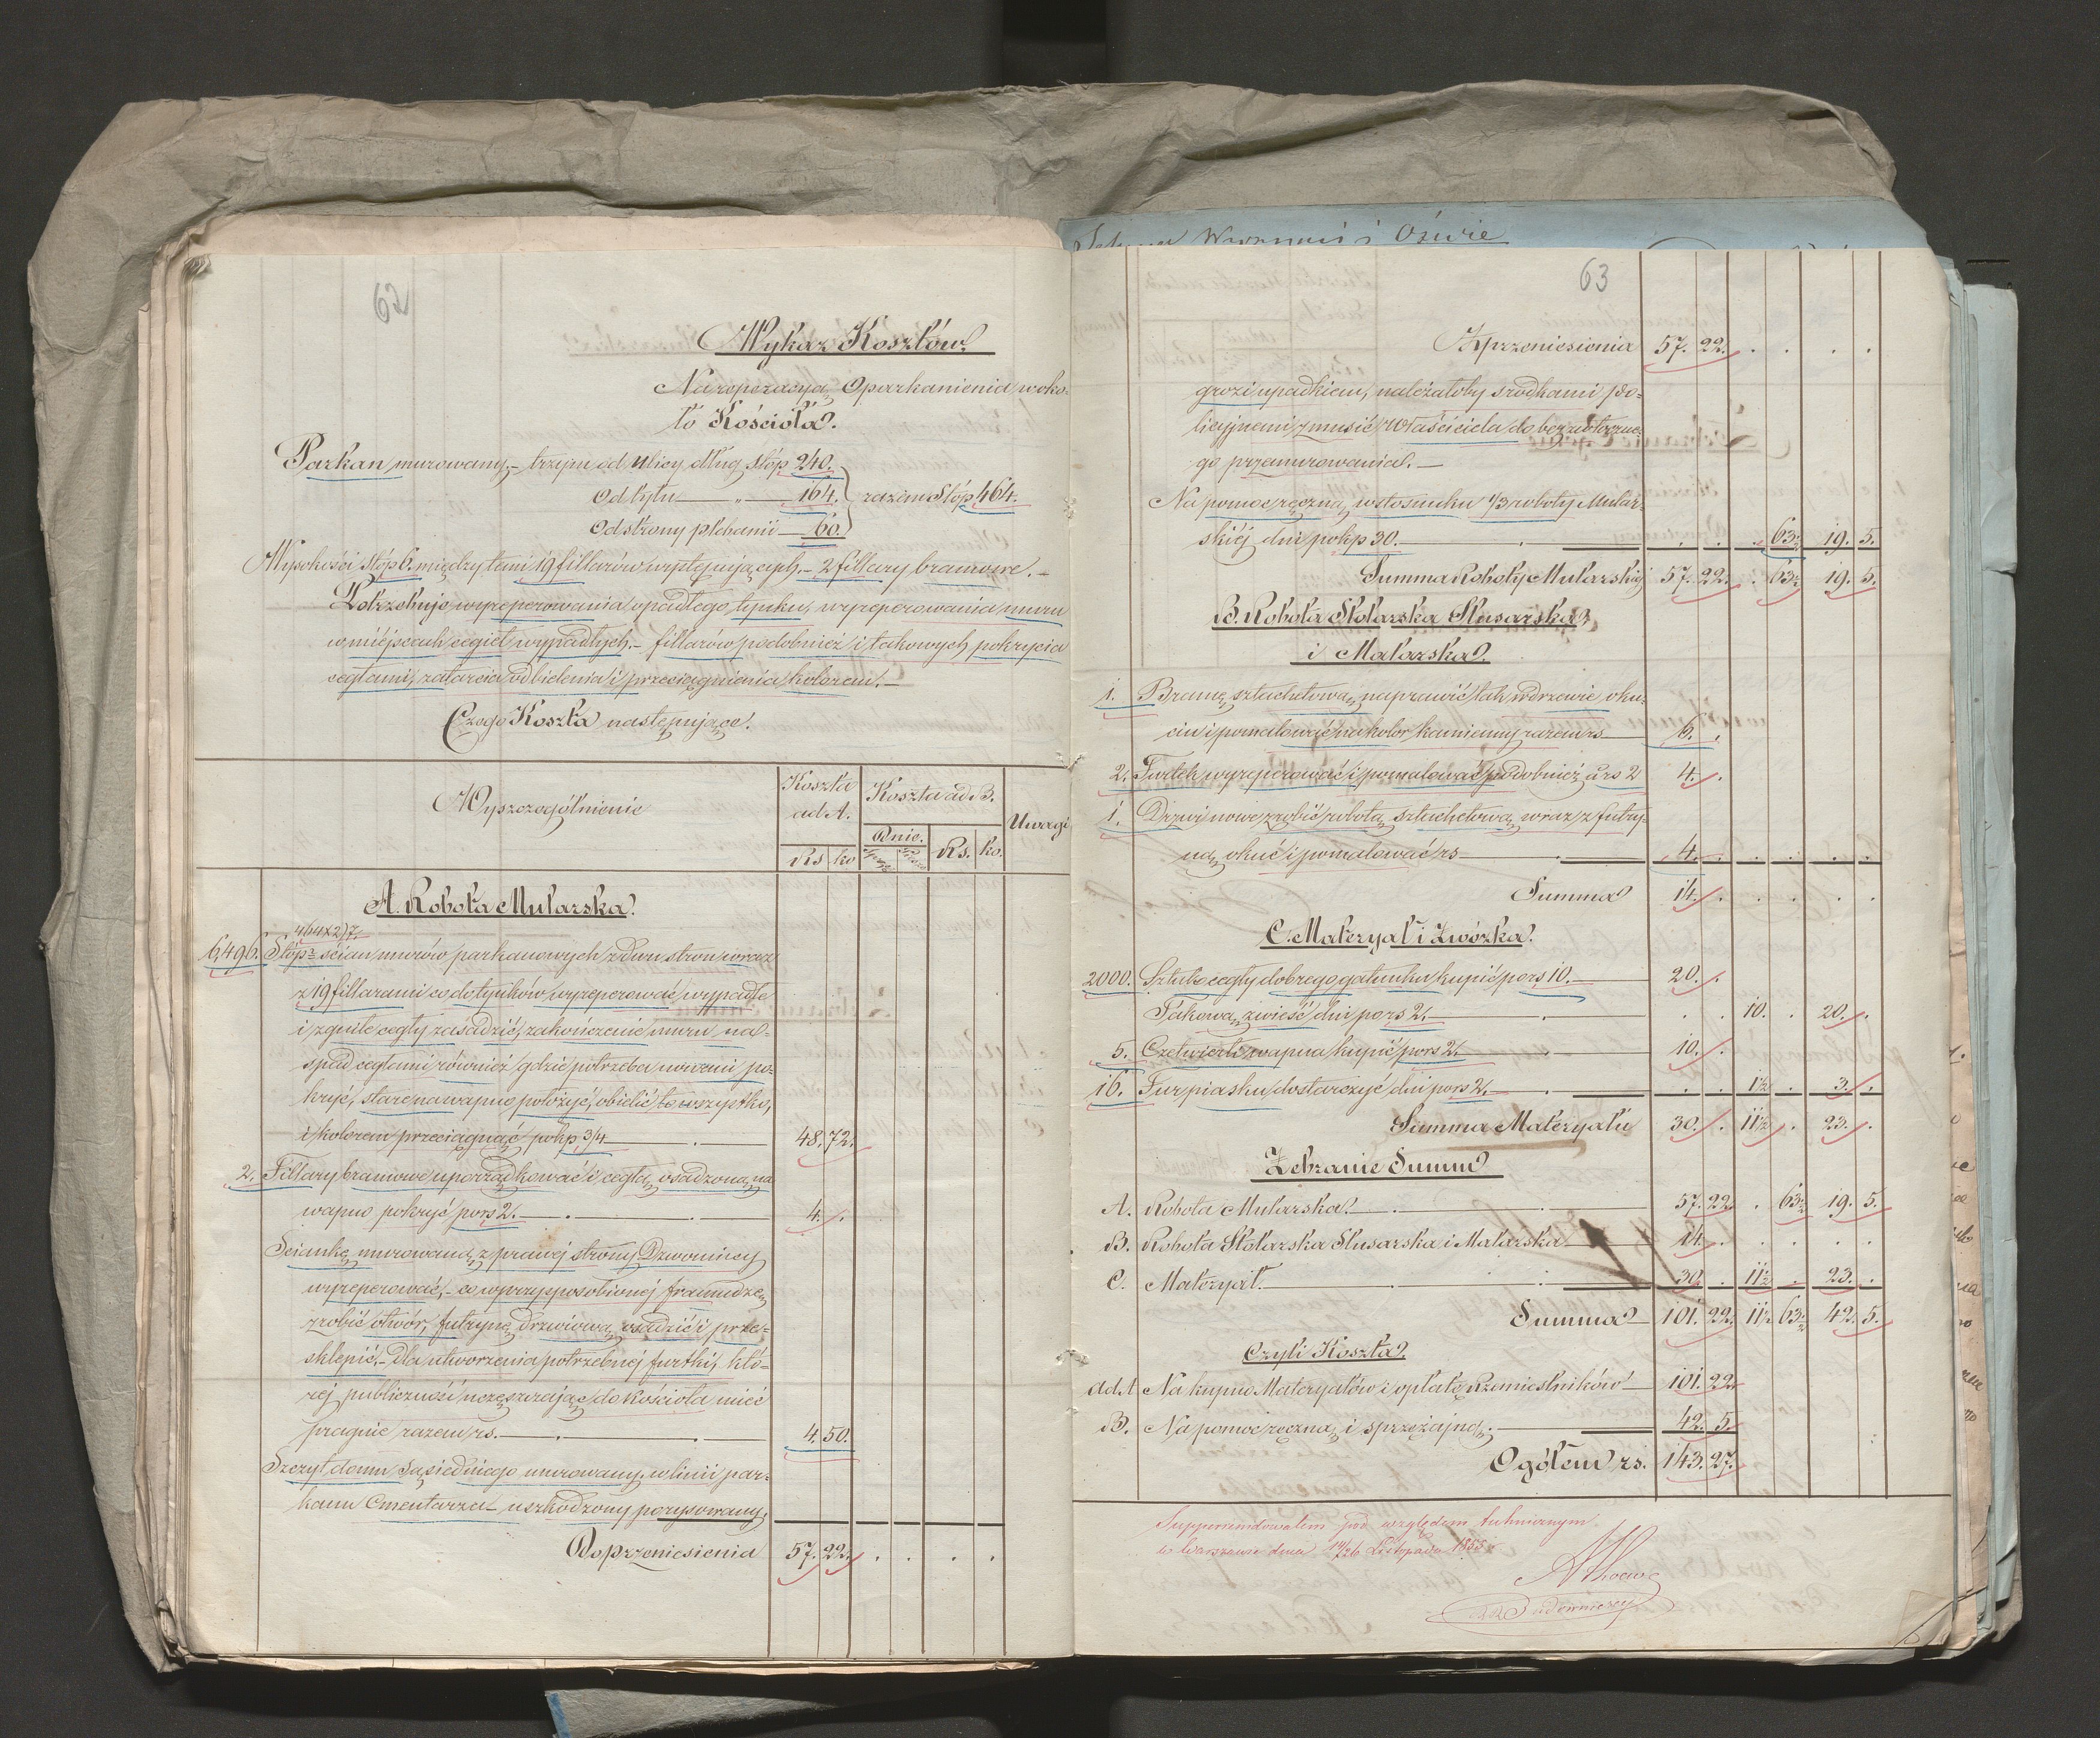 62
Wykaz Kosztów.
Na reperacyą Oparkanienia woko-
ło Kościoła.
Parkan murowany, – trzepu od Ulicy dług. Stóp 240.
Od tyłu — " — 164. razem Stóp 464.
Od strony plebanii — 60.
Wysokości stóp 6. między temi 19 fillarów występujących. – 2 fillary bramowe. –
Potrzebuje wyreperowania opadłego tynku, wyreperowania muru
w miéjscach cegieł wypadłych. – fillarów podobnież i takowych pokrycia
cegłami, zatarcia odbielenia i przeciągnienia kolorem. –
Czego Koszta następujące.
Wyszczególnienie
Koszta ad A.
Koszta ad B.
Uwagi
Dnie.
Rs ko
Rs. ko.
A. Robota Mularska.
464×2)7.
6,496. Stóp² ścian murów parkanowych z dwu stron wraz
z 19 fillarami co do tynków wyreperować, wypadłe
i zgniłe cegły zasadzić, zakończenie muru na-
spad cegłami również gdzie potrzeba nowemi po-
kryć, stare na wapno położyć, obielić to wszystko,
i kolorem przeciągnąć po kp. 3/4 — 48. 72.
2. Fillary bramowe uporządkować i cegłą osadzoną na
wapno pokryć po rs 2. — 4. .
Sciankę murowaną z prawej strony Dzwonnicy
wyreperować, – co w przysposobionej framudze
zrobić otwór, futrynę drzwiową osadzić i prze-
sklepić. – Dla utworzenia potrzebnej furtki, któ-
rej publiczność uczęszczając do Kościoła mieć
pragnie razem rs. — 4. 50.
Szczyt domu Sąsiedniego murowany, w linii par-
kanu Cmentarza – uszkodzony porysowany,
Do przeniesienia 57. 22. . . . .
63
Z przeniesienia 57. 22. . . . .
grozi upadkiem, należałoby srodkami po-
licyjnemi zmusić Właściciela do bezzwłoczne-
go przemurowania. —
Na pomoc ręczną w stosunku 1/3 roboty Mular-
skiéj dni po kp 30. — . . . 63½ 19. 5.
Summa Roboty Mularskiéj 57. 22. . 63½ 19. 5.
B. Robota Stolarska Slusarska
i Malarska.
1. Bramę sztachetową naprawić tak w drzewie oku-
ciu i pomalować na kolor kamienny razem rs — 6. .
2. Furtek wyreperować i pomalować podobnież à rs 2 4. .
1. Drzwi nowe zrobić robotą sztachetową wraz z futry-
ną, okuć i pomalować rs — 4. . . . . .
Summa 14. . . . . .
C. Materyał i Zwózka.
2000. Sztuk cegły dobrego gatunku kupić po rs 10. — 20. .
Takową zwieść dni po rs 2. — . . 10. . 20. .
5. Czetwierti wapna kupić po rs 2. — 10. .
16. Fur piasku dostarczyć dni po rs 2. — . . 1½ . 3. .
Summa Materyału 30. . 11½ . 23. .
Zebranie Summ
A. Robota Mularska. — 57. 22. . 63½ 19. 5.
B. Robota Stolarska Slusarska i Malarska — 14. . . . . .
C. Materyał. — 30. . 11½ . 23. .
Summa — 101. 22. 11½ 63½ 42. 5.
Czyli Koszta.
ad A Na kupno Materyałów i opłatę Rzemieslników — 101. 22.
B. Na pomoc ręczną i sprzężajną. — 42. 5.
Ogółem rs. 143. 27.
Superrewidowałem pod względem technicznym
w Warszawie dnia 14/26 Listopada 1855 r.